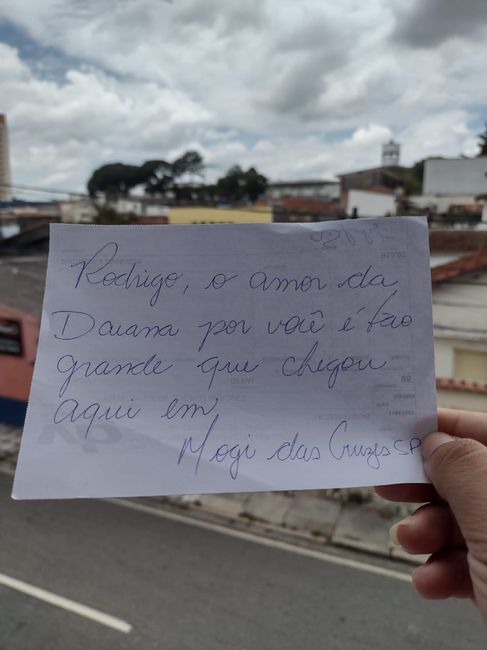 Rodrigo, o amor da
Daiana por você é tão
grande que chegou
aqui em
Mogi das Cruzes SP